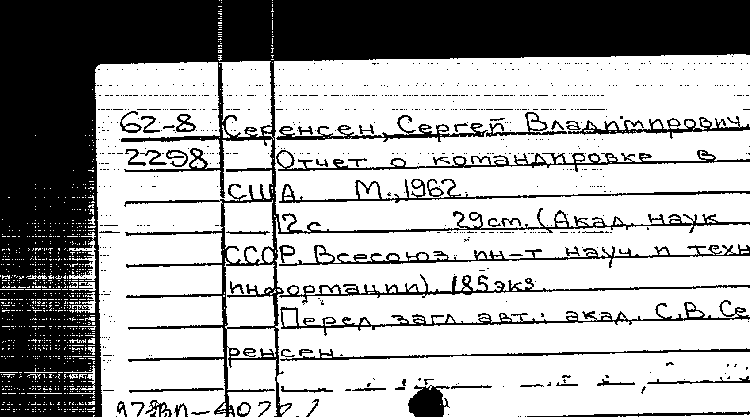 62-8 Серенсен, Сергей Владимирович.
2298 Отчет о командировке в
США. М., 1962.
12 с. 29 cm. (Акад. наук
СССР. Всесоюз. ин-т науч. и техн
информации). 185 экз
Перед загл. авт.: акад. С.В. Се
ренсен.